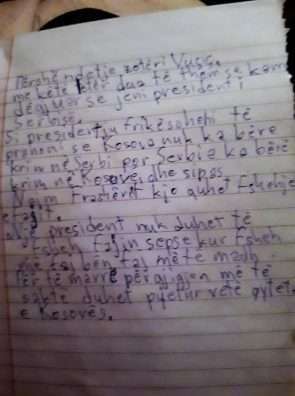 Përshëndetje zotëri Vuçiç.
me këtë letër dua të them se kam
dëgjuar se jeni presidenti i
Serbisë.
Si president ju frikësoheni të
pranoni se Kosova nuk ka bërë
krim në Serbi por Serbia ka bërë
krim në Kosovë, dhe sipas
Naim Frashërit kjo quhet Fshehje
e fajit.
president nuk duhet të
fsheh fajin sepse kur fsheh
një faj bën faj më të madh.
Për të marrë përgjigjen më të
saktë duhet pyetur vetë qytet
e Kosovës.